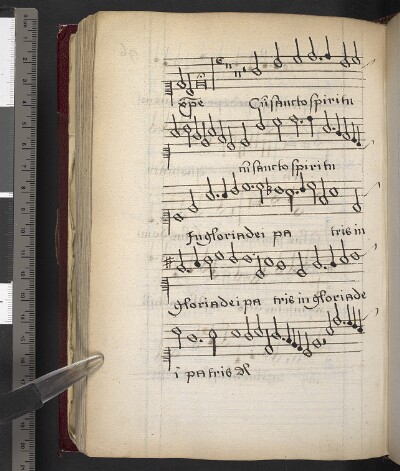 Cū sancto spiritu
cū sancto spiritu
In gloria dei pa tris in
gloria dei pa tris in gloria de
i patris